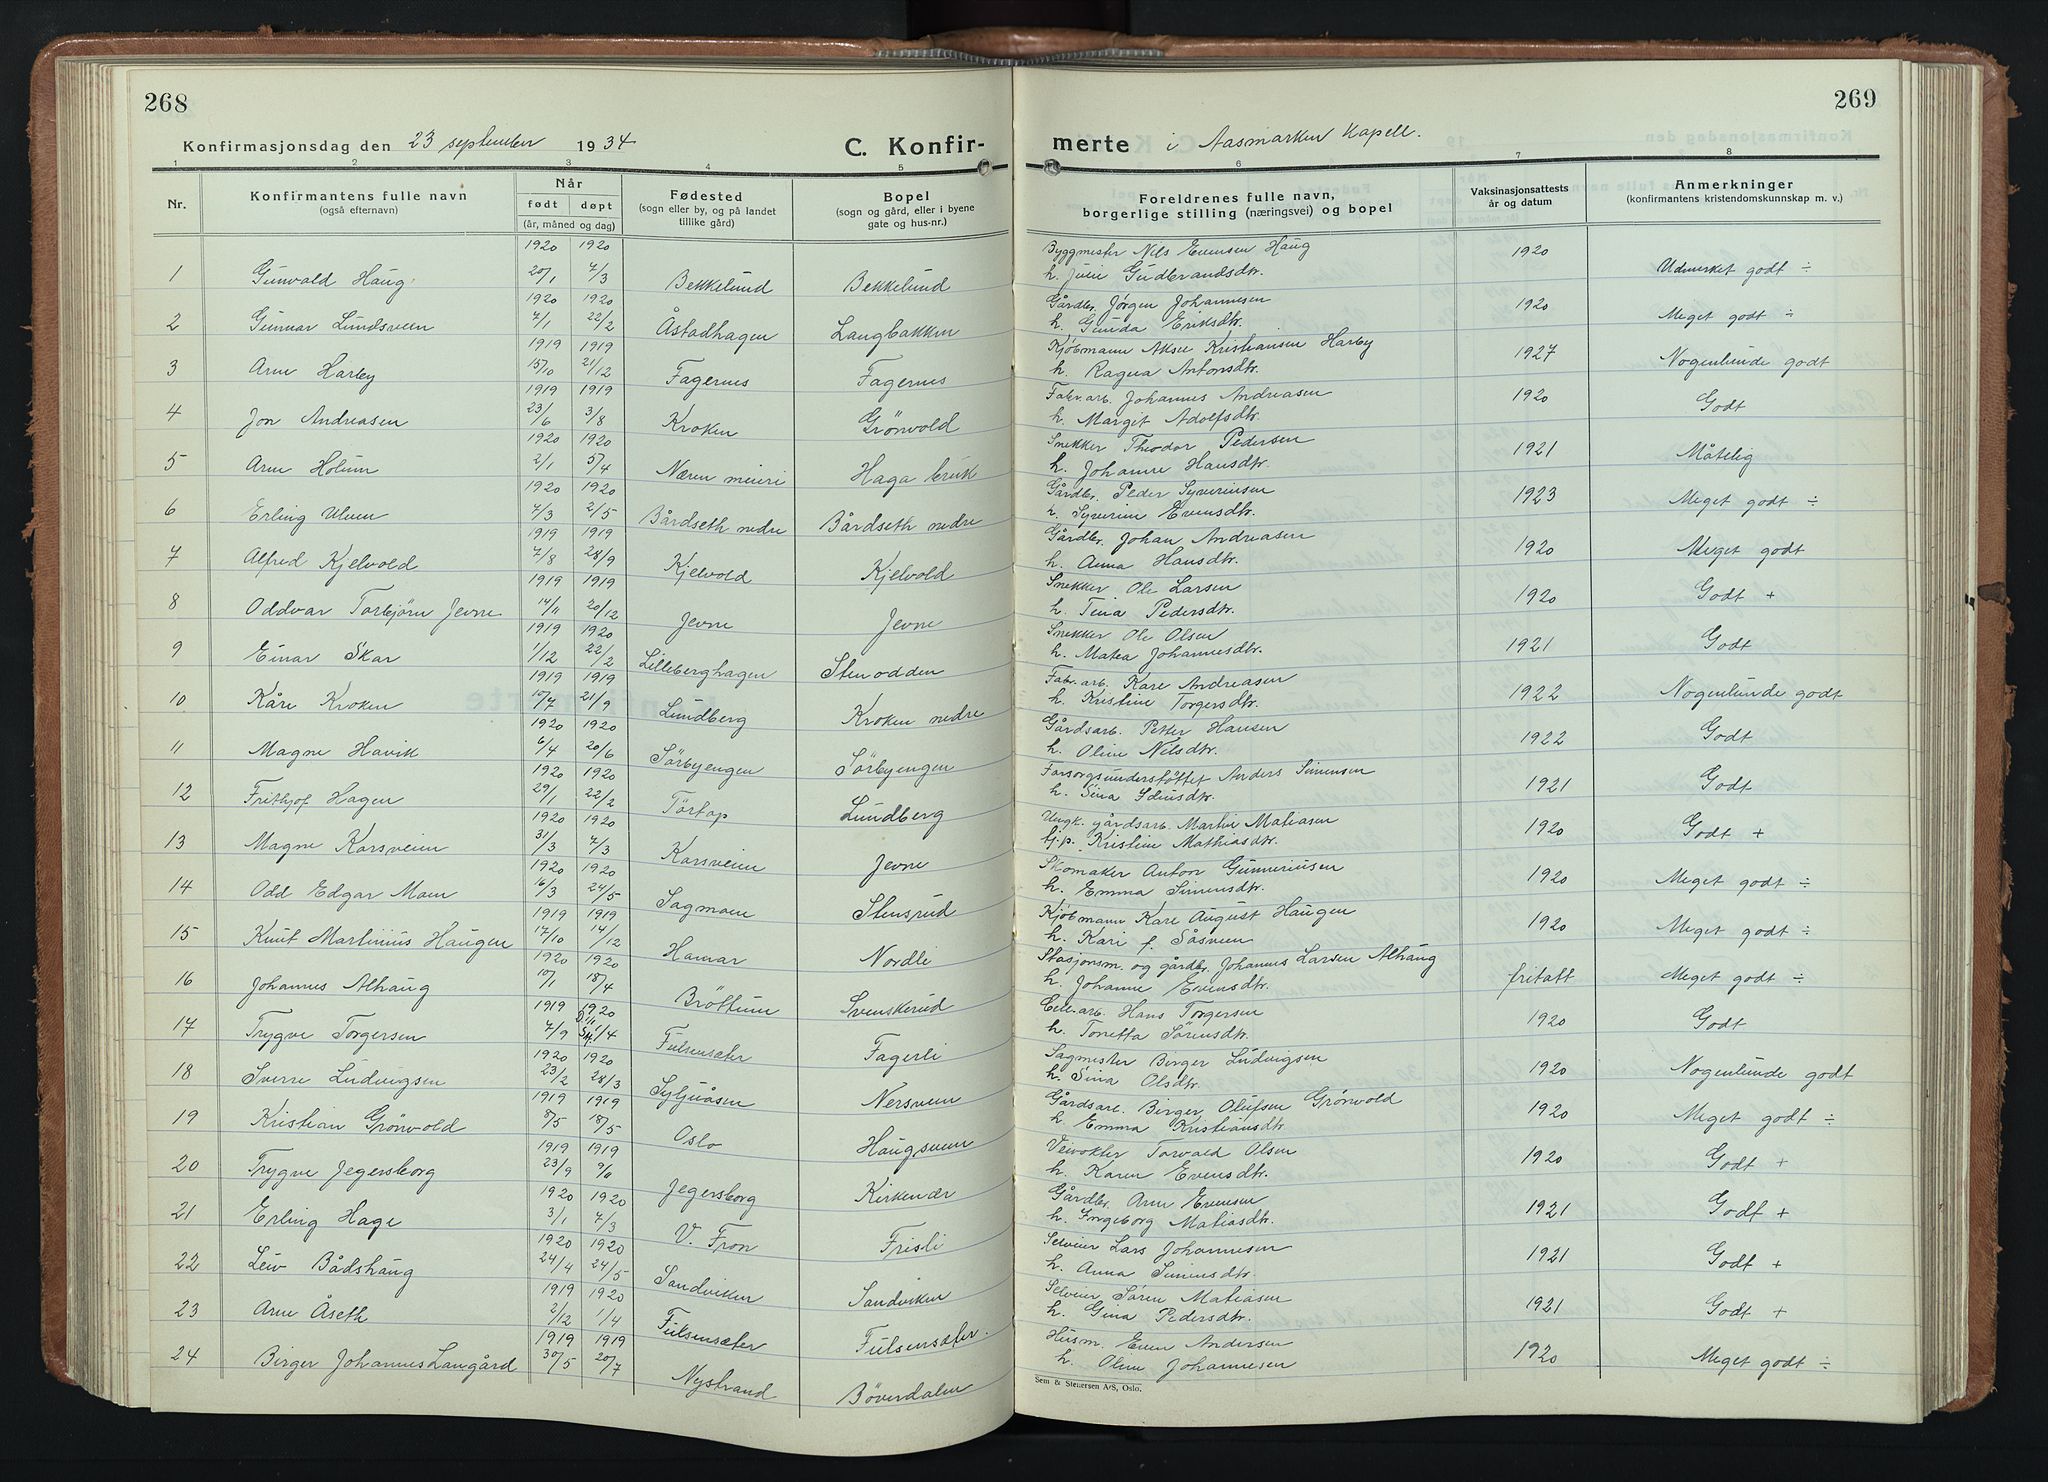 268
Konfirmasjonsdag den 23 september 1934
C. Konfir-
1 2 3 4 5
Nr.
Konfirmantens fulle navn
(også efternavn)
Når
født døpt
(år, måned og dag)
Fødested
(sogn eller by, og på landet
tillike gård)
Bopel
(sogn og gård, eller i byene
gate og hus-nr.)
1920 1920
1 Gunvald Haug 20/1 7/3 Bekkelund Bekkelund
1920 1920
2 Gunnar Lundsveen 7/1 22/2 Åstadhagen Langbakken
1919 1919
3 Arne Harby 15/10 21/12 Fagernes Fagernes
1919 1919
4 Jon Andreasen 23/6 3/8 Kroken Grönvold
1920 1920
5 Arne Holum 2/1 5/4 Næren meieri Haga bruk
1920 1920
6 Erling Ulven 7/3 2/5 Bårdseth nedre Bårdseth nedre
1919 1919
7 Alfred Kjelvold 7/8 28/9 Kjelvold Kjelvold
1919 1919
8 Oddvar Torbjörn Jevne 14/11 20/12 Jevne Jevne
1919 1920
9 Einar Skar 1/12 22/2 Lilleberghagen Stenodden
1919 1919
10 Kåre Kroken 10/7 21/9 Lundberg Kroken nedre
1920 1920
11 Magne Havik 6/4 20/6 Sörbyengen Sörbyengen
1920 1920
12 Frithjof Hagen 29/1 22/2 Törtop Lundberg
1920 1920
13 Magne Karsveen 31/3 7/3 Karsveen Jevne
1920 1920
14 Odd Edgar Moen 16/3 24/5 Sagmoen Stensrud
1919 1919
15 Knut Martinius Haugen 17/10 14/12 Hamar Nordli
1920 1920
16 Johannes Alhaug 10/1 18/4 Bröttum Svenskerud
1919 1920
17 Trygve Torgersen 7/9 1/4 Fulsensæter Fagerli
1920 1920
18 Sverre Ludvigsen 23/2 28/3 Syljuåsen Nersveen
1919 1919
19 Kristian Grönvold 8/5 18/5 Oslo Haugsveen
1919 1919
20 Trygve Jegersborg 23/9 9/11 Jegersborg Kirkenær
1920 1920
21 Erling Hage 3/1 7/3 V. Fron Frisli
1920 1920
22 Leiv Bådshaug 24/4 24/5 Sandviken Sandviken
1919 1920
23 Arne Åseth 2/12 1/4 Fulsensæter Fulsensæter.
1919 1919
24 Birger Johannes Langård 30/5 20/7 Nystrand Böverdalen
269
merte i Aasmarken Kapell.
6 7 8
Foreldrenes fulle navn,
borgerlige stilling (næringsvei) og bopel
Vaksinasjonsattests
år og datum
Anmerkninger
(konfirmantens kristendomskunnskap m. v.)
Byggmester Nils Evensen Haug
h. Julie Gudbrandsdtr. 1920 Udmerket godt ÷
Gårdbr. Jörgen Johannesen
h. Gunda Eriksdtr. 1920 Meget godt ÷
Kjöbmann Aksel Kristiansen Harby
h. Ragna Antonsdtr. 1927 Nogenlunde godt
Fabr.arb. Johannes Andreasen
h. Margit Adolfsdtr. 1920 Godt
Snekker Theodor Pedersen
h. Johanne Hansdtr. 1921 Måtelig
Gårdbr. Peder Syverinsen
h. Syverine Evensdtr. 1923 Meget godt ÷
Gårdbr. Johan Andreasen
h. Anna Hansdtr. 1920 Meget godt
Snekker Ole Larsen
h. Tina Pedersdtr. 1920 Godt +
Snekker Ole Olsen
h. Matea Johannesdtr. 1921 Godt
Fabr.arb. Kare Andreasen
h. Kristine Torgersdtr. 1922 Nogenlunde godt
Gårdsarb. Petter Hansen
h. Oline Nilsdtr. 1922 Godt
Forsorgsunderstöttet Anders Simensen
h. Sina 1921 Godt
Ungk. gårdsarb. Martin Matiasen
Gp. Kristine Mathiasdtr. 1920 Godt +
Skomaker Anton Gunneriusen
h. Emma Simensdtr. 1920 Meget godt ÷
Kjöbmann Kare August Haugen
h. Kari f. Såsveen 1920 Meget godt ÷
Stasjonsm. og gårdbr. Johannes Larsen Alhaug
h. Johanne Evensdtr. fritatt Meget godt ÷
Cell.arb. Hans Torgersen
h. Tonetta Sörensdtr. 1920 Godt
Sagmester Birger Ludvigsen
h. Sina Olsdtr. 1920 Nogenlunde godt
Gårdsarb. Birger Olufsen Grönvold
h. Emma Kristiansdtr. 1920 Meget godt ÷
Veivokter Torvald Olsen
h. Karen Evensdtr. 1920 Godt +
Gårdbr. Arne Evensen
h. Ingeborg Matiasdtr. 1921 Godt +
Selveier Lars Johannesen
h. Anna Simensdtr. 1921 Godt +
Selveier Sören Matiasen
h. Gina Pedersdtr. 1921 Godt +
Husm. Even Andersen
h. Oline Johannesen 1920 Meget godt ÷
Sem & Stenersen A/S, Oslo.